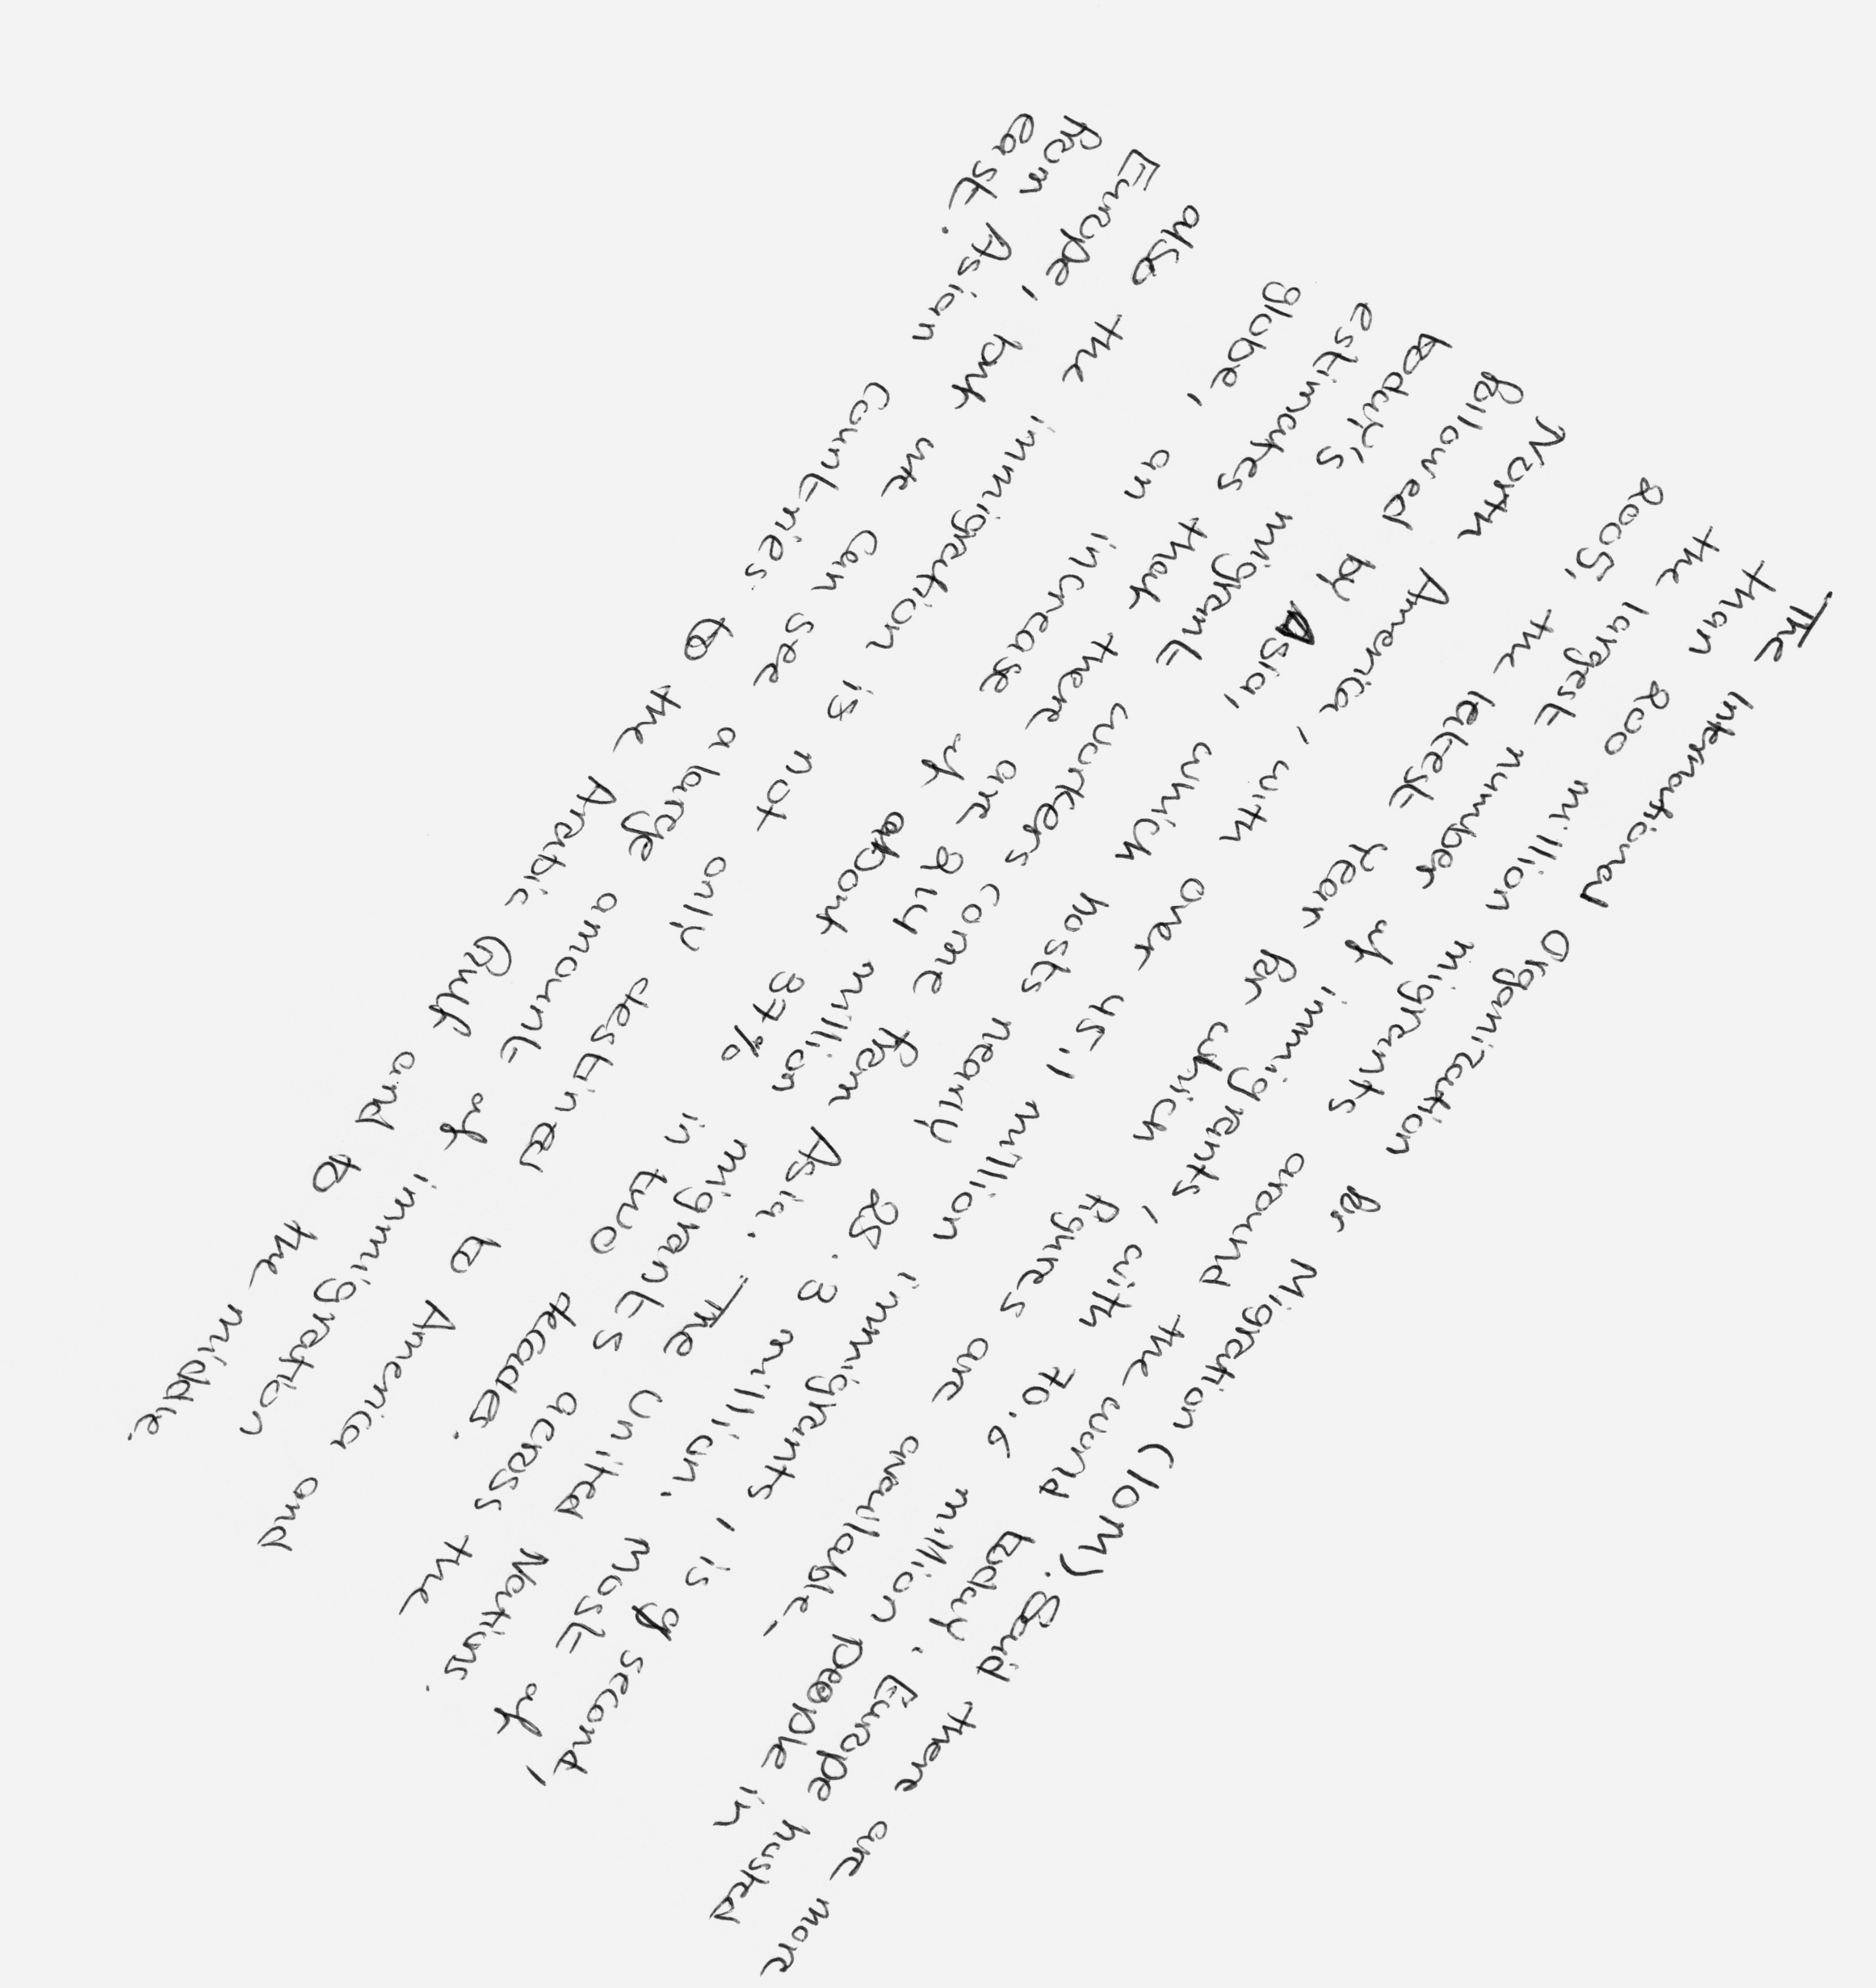 The International Organization for Migration (IOM). Said there are more
than 200 million migrants around the world today. Europe hosted
the largest number of immigrants, with 70.6 million people in
2005, the latest year for which figures are available,
North America, with over 45.1 million immigrants, is second,
followed by Asia, which hosts nearly 25.3 million. Most of
today's migrant workers come from Asia. The United Nations.
estimates that there are 214 million migrants across the
globe, an increase of about 37% in two decades.
also the immigration is not only destined to America and
Europe, but we can see a large amount of immigration
from Asian countries to the Arabic Gulf and to the middle.
east.